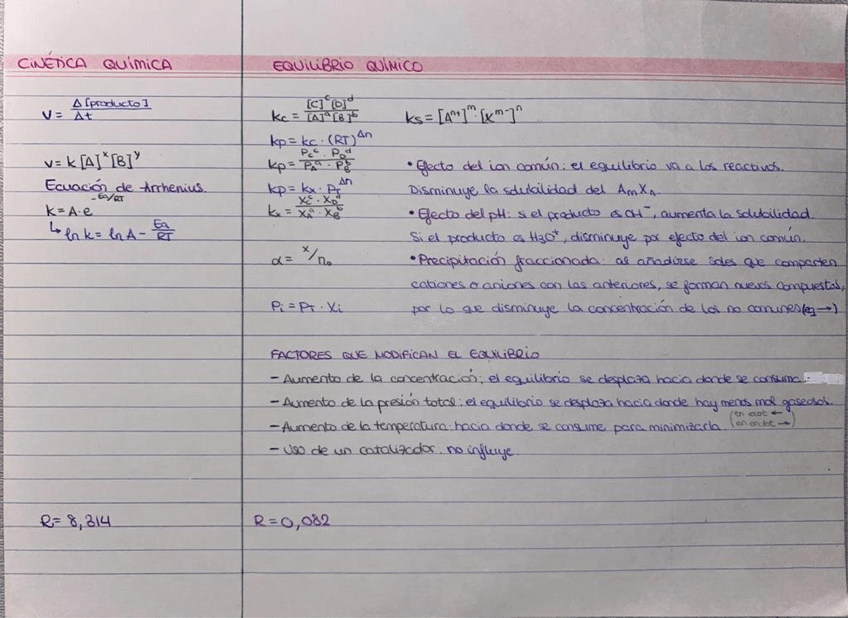 CINÉTICA QUÍMICA
V = Δ[producto] / Δt
v = k [A]^x [B]^y
Ecuación de Arrhenius
k = A · e^-Ea/RT
↳ ln k = ln A - Ea/RT
R = 8,314
EQUILIBRIO QUÍMICO
kc = [C]^c [D]^d / [A]^a [B]^b
kp = kc · (RT)^Δn
kp = Pc^c · PD^d / PA^a · PB^b
kp = kx · PT^Δn
kx = Xc^c · XD^d / XA^a · XB^b
α = x/n₀
Pi = PT · Xi
ks = [A^n+]^m · [X^m-]^n
• Efecto del ion común: el equilibrio va a los reactivos.
Disminuye la solubilidad del AmXn.
• Efecto del pH: si el producto es OH⁻, aumenta la solubilidad.
Si el producto es H3O⁺, disminuye por efecto del ion común.
• Precipitación fraccionada: al añadirse sales que comparten
cationes o aniones con las anteriores, se forman nuevos compuestos,
por lo que disminuye la concentración de los no comunes (eq →)
FACTORES QUE MODIFICAN EL EQUILIBRIO
- Aumento de la concentración: el equilibrio se desplaza hacia donde se consuma.
- Aumento de la presión total: el equilibrio se desplaza hacia donde hay menos mol gaseosos.
- Aumento de la temperatura: hacia donde se consume para minimizarla (en exot ← en endot →)
- Uso de un catalizador: no influye.
R = 0,082